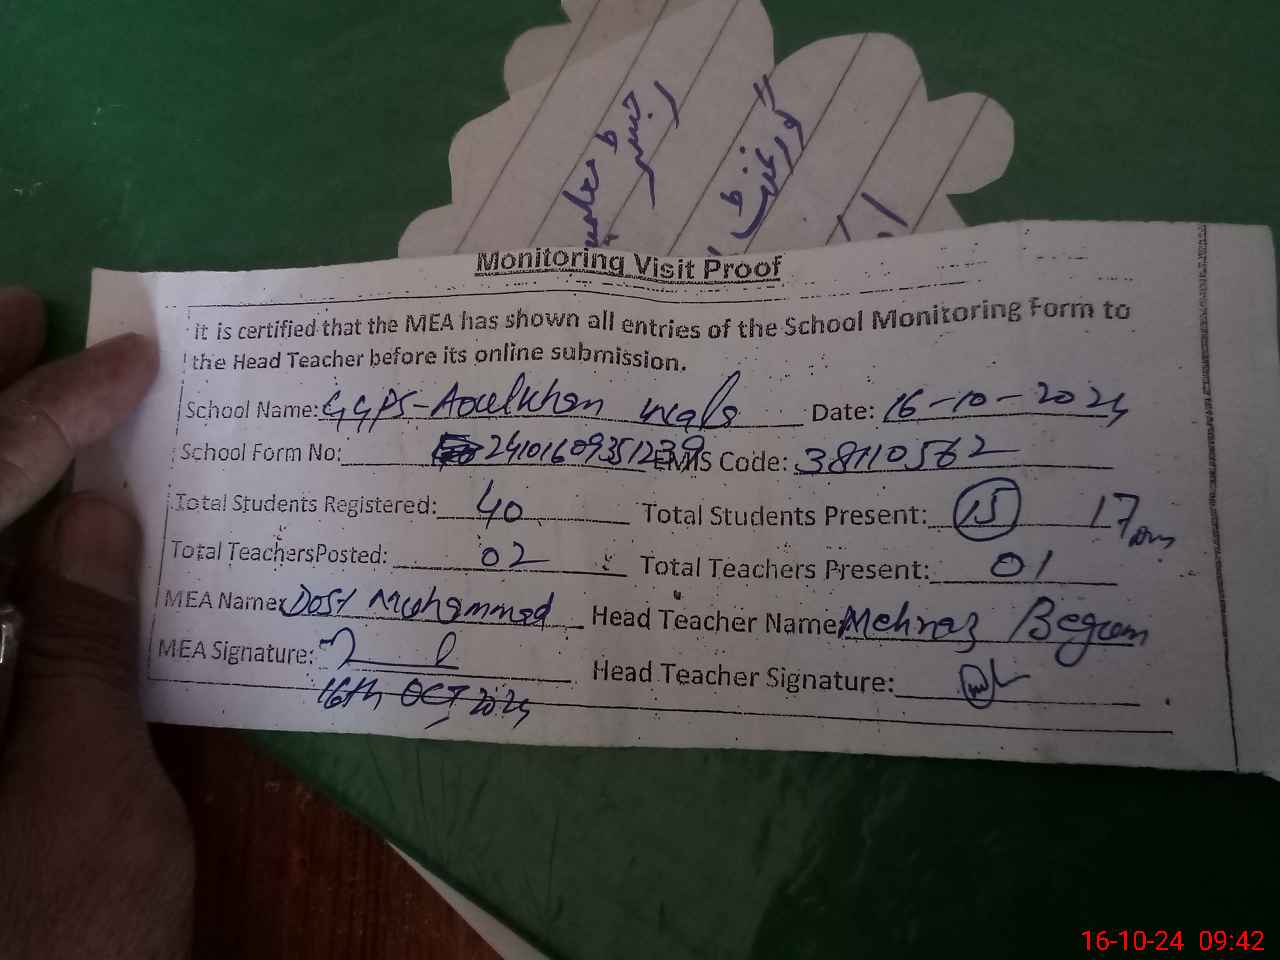 معلمہ
گورنمنٹ
Monitoring Visit Proof
it is certified that the MEA has shown all entries of the School Monitoring Form to
the Head Teacher before its online submission.
School Name: GGPS- Date: 16-10-2024
School Form No: 24101609351239 EMIS Code: 38110562
Total Students Registered: 40 Total Students Present: 15 17
Total TeachersPosted: 02 Total Teachers Present: 01
MEA Name: Dost Muhammad Head Teacher Name: Mehnaz Begum
MEA Signature: Head Teacher Signature:
16th OCT, 2024
16-10-24 09:42